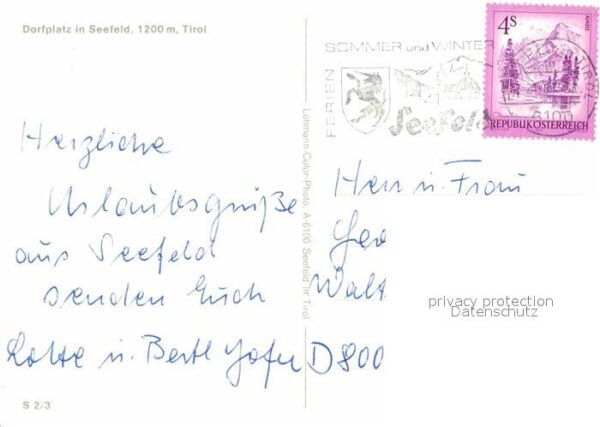 Dorfplatz in Seefeld, 1200 m, Tirol
Herzliche
Urlaubsgrüße
aus Seefeld
senden Euch
Lotte u. Bertl
S 2/3
Lohmann-Color-Photo, A-6100 Seefeld in Tirol
FERIEN
SOMMER und WINTER
Seefeld
6100
4S
REPUBLIK ÖSTERREICH
Herr u. Frau
Geo
Walt
D 800
privacy protection
Datenschutz